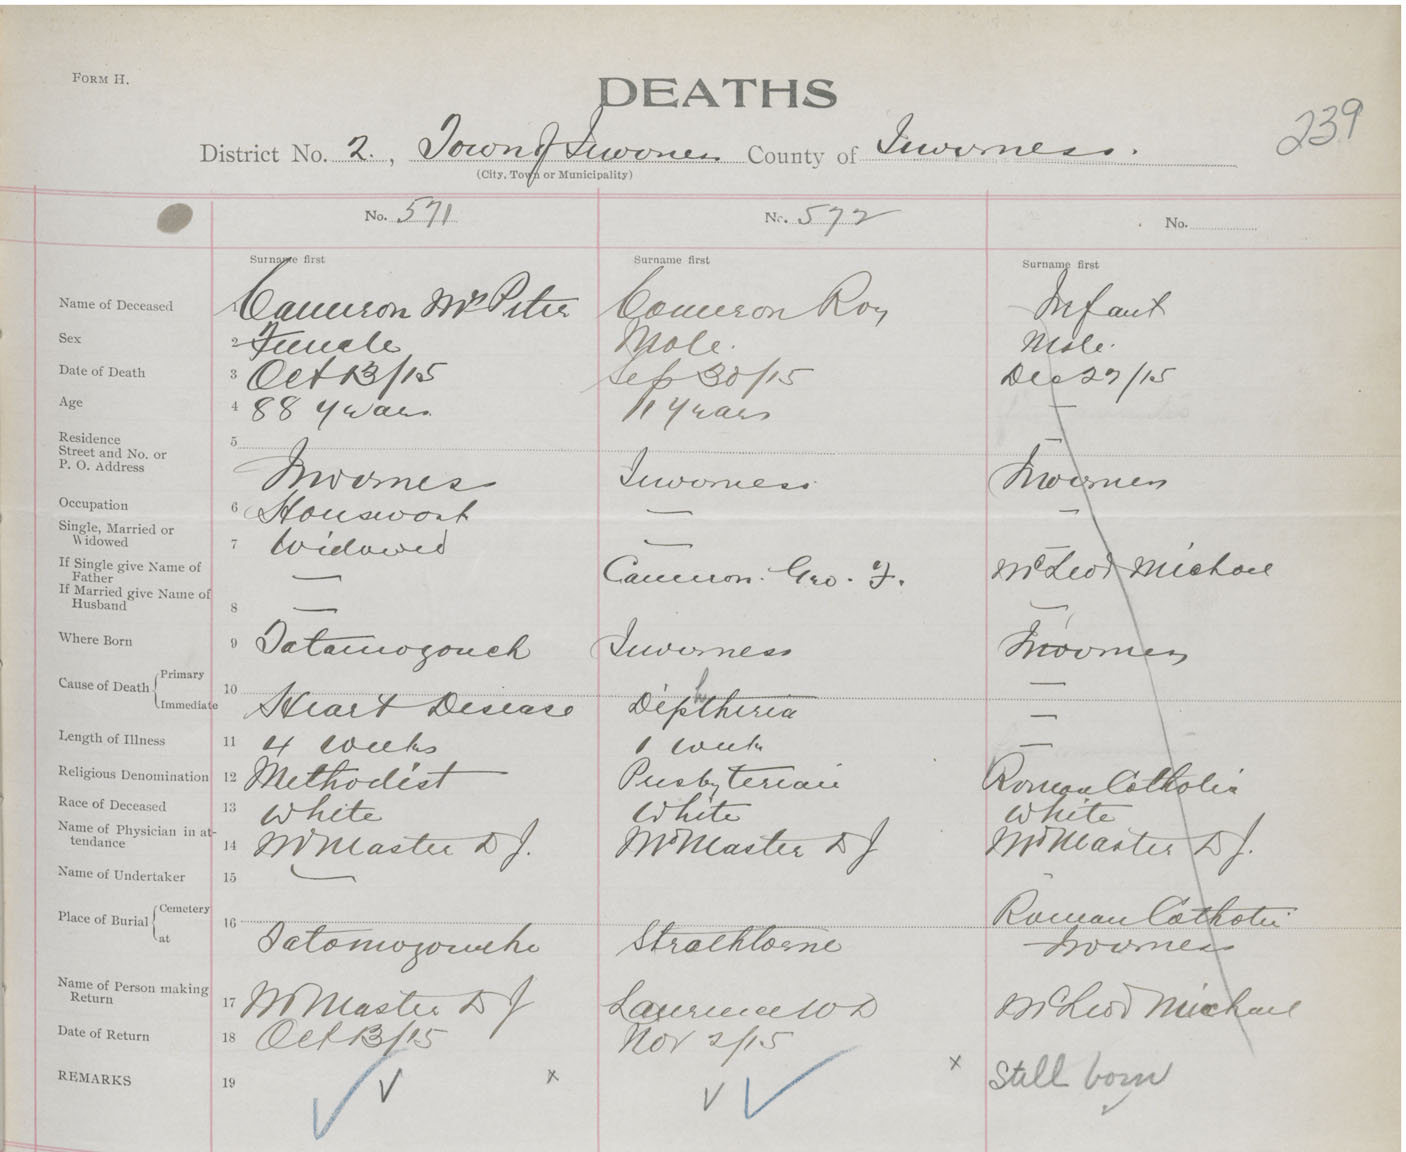 FORM H.
DEATHS
239
District No. 2. , Town of Inverness County of Inverness.
(City, Town or Municipality)
No. 571 No. 572 No.
Surname first Surname first Surname first
Name of Deceased 1 Cameron Mrs Peter Cameron Roy Infant
Sex 2 Female Male. Male.
Date of Death 3 Oct 13/15 Sep 30/15 Dec 27/15
Age 4 88 years. 11 years —
Residence 5 —
Street and No. or
P. O. Address Inverness Inverness. Inverness
Occupation 6 Housework — —
Single, Married or
Widowed 7 Widowed — —
If Single give Name of
Father — Cameron. Geo. F. McLeod Michael
If Married give Name of
Husband 8 — —
Where Born 9 Tatamogouch Inverness Inverness
Cause of Death { Primary 10 —
Immediate Heart Disease Diphtheria —
Length of Illness 11 4 weeks 1 week —
Religious Denomination 12 Methodist Presbyterian Roman Catholic
Race of Deceased 13 White White White
Name of Physician in at-
tendance 14 McMaster D J. McMaster D J McMaster D J.
Name of Undertaker 15 — -
Place of Burial { Cemetery 16 Roman Catholic
at Tatamogouche Strathlorne Inverness
Name of Person making
Return 17 McMaster D J Laurence W D McLeod Michael
Date of Return 18 Oct 13/15 Nov 2/15
REMARKS 19 ✓ ✓ x ✓ ✓ x Still born ✓